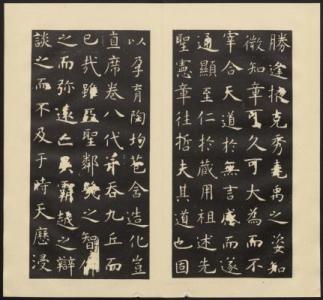 勝逢掖克秀堯禹之姿知
微知章可久可大為而不
宰合天道於無言感而遂
通顯至仁於藏用祖述先
聖憲章往哲夫其道也固
以孕育陶均苞含造化豈
直席卷八代并吞九丘而
已哉雖亞聖鄰幾之智仰
之而弥遠亡吳霸越之辯
談之而不及于時天曆浸